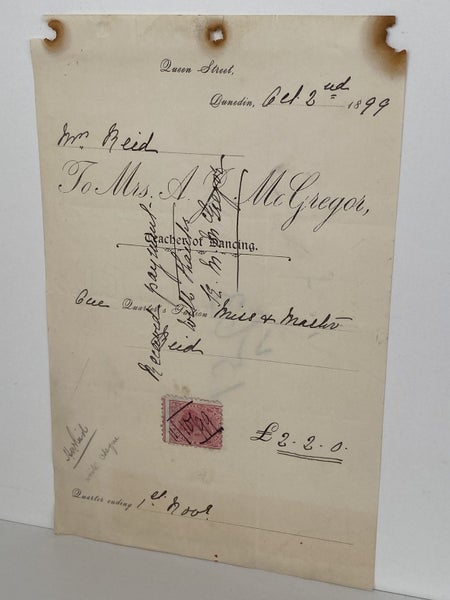 Queen Street,
Dunedin, Oct 2nd 1899
Mrs Reid
To Mrs. A. McGregor,
Teacher of Dancing.
One Quarter's Tuition Miss & Master
Reid
£2.2.0.
Quarter ending 1st Novr
Received payment
with thanks